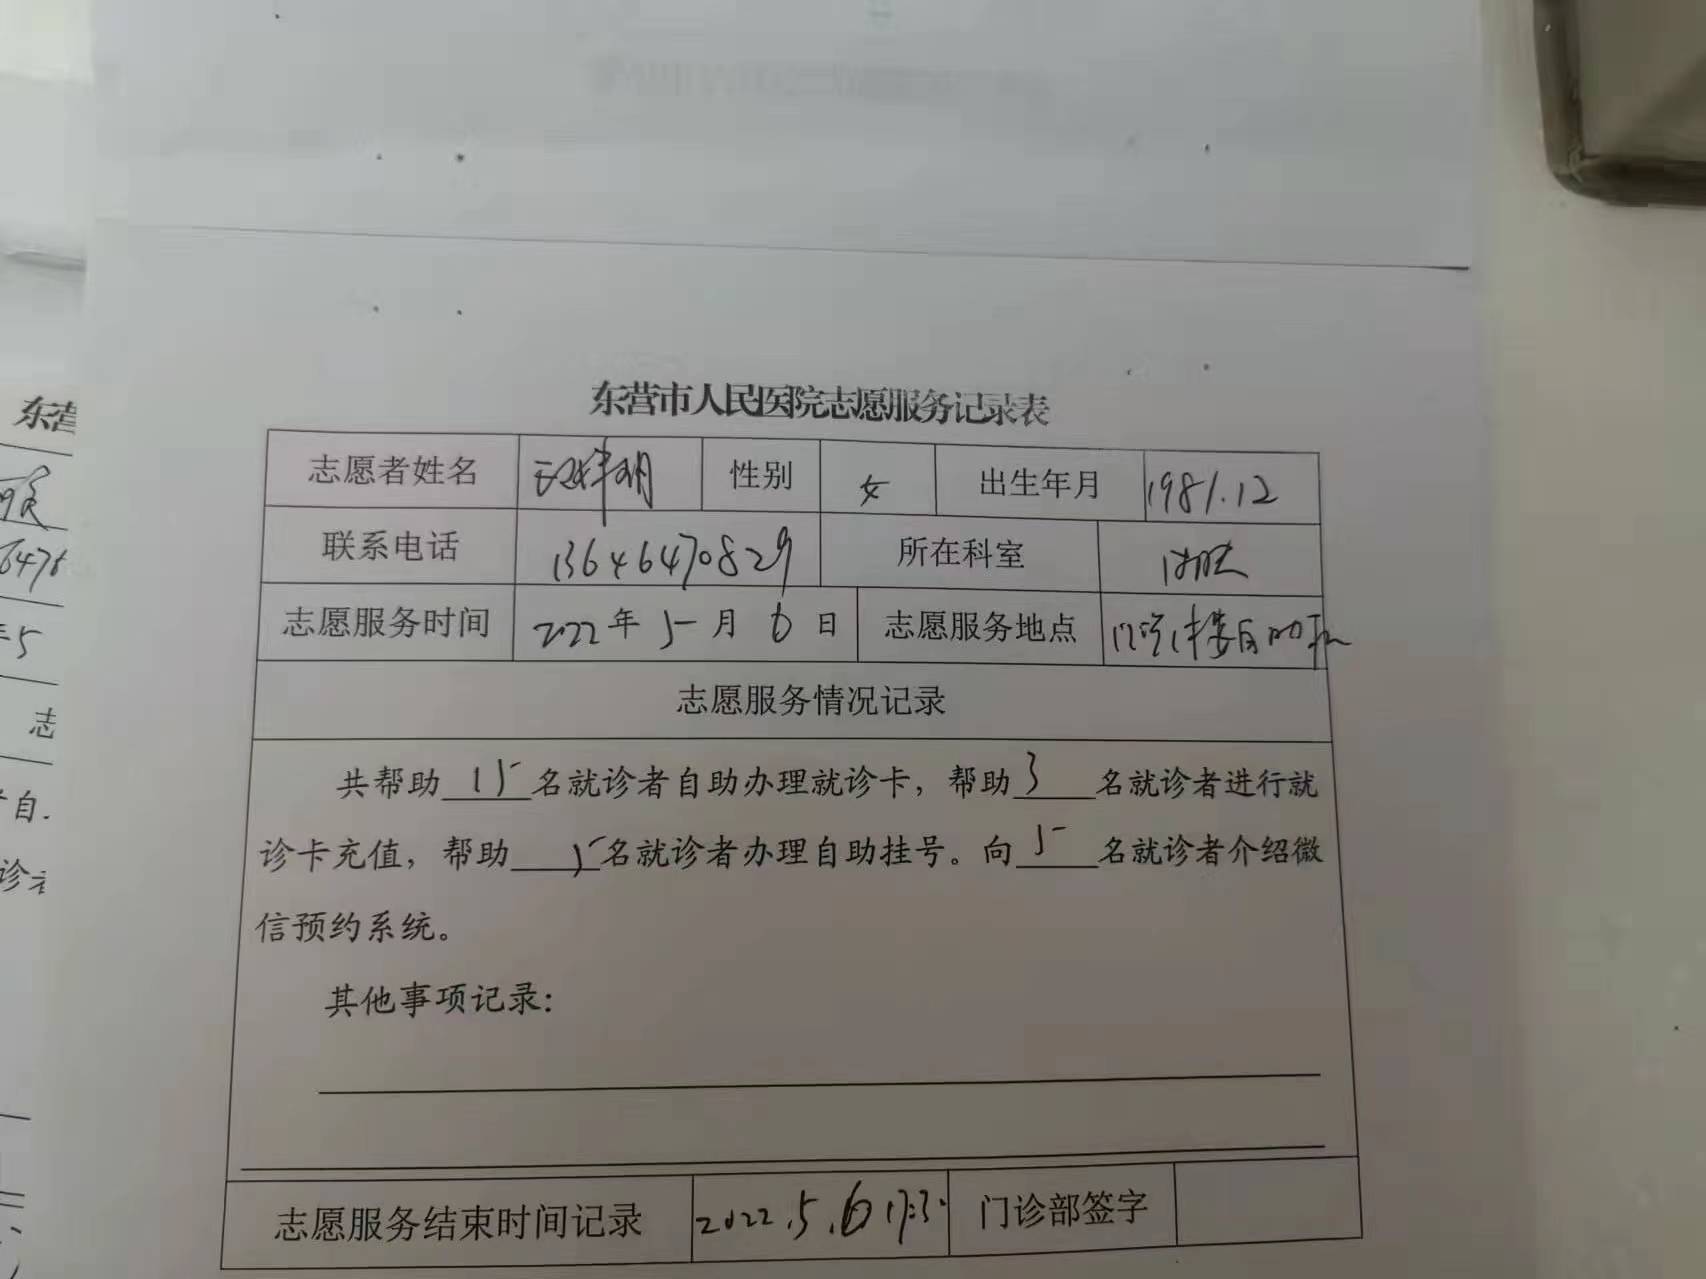 东营市人民医院志愿服务记录表
志愿者姓名 性别 女 出生年月 1981.12
联系电话 13646470829 所在科室
志愿服务时间 2022年 5月 6日 志愿服务地点
志愿服务情况记录
共帮助 15 名就诊者自助办理就诊卡，帮助 3 名就诊者进行就
诊卡充值，帮助 5 名就诊者办理自助挂号。向 5 名就诊者介绍微
信预约系统。
其他事项记录：
志愿服务结束时间记录 2022.5.6 门诊部签字
东营
6476
5
志
自
诊